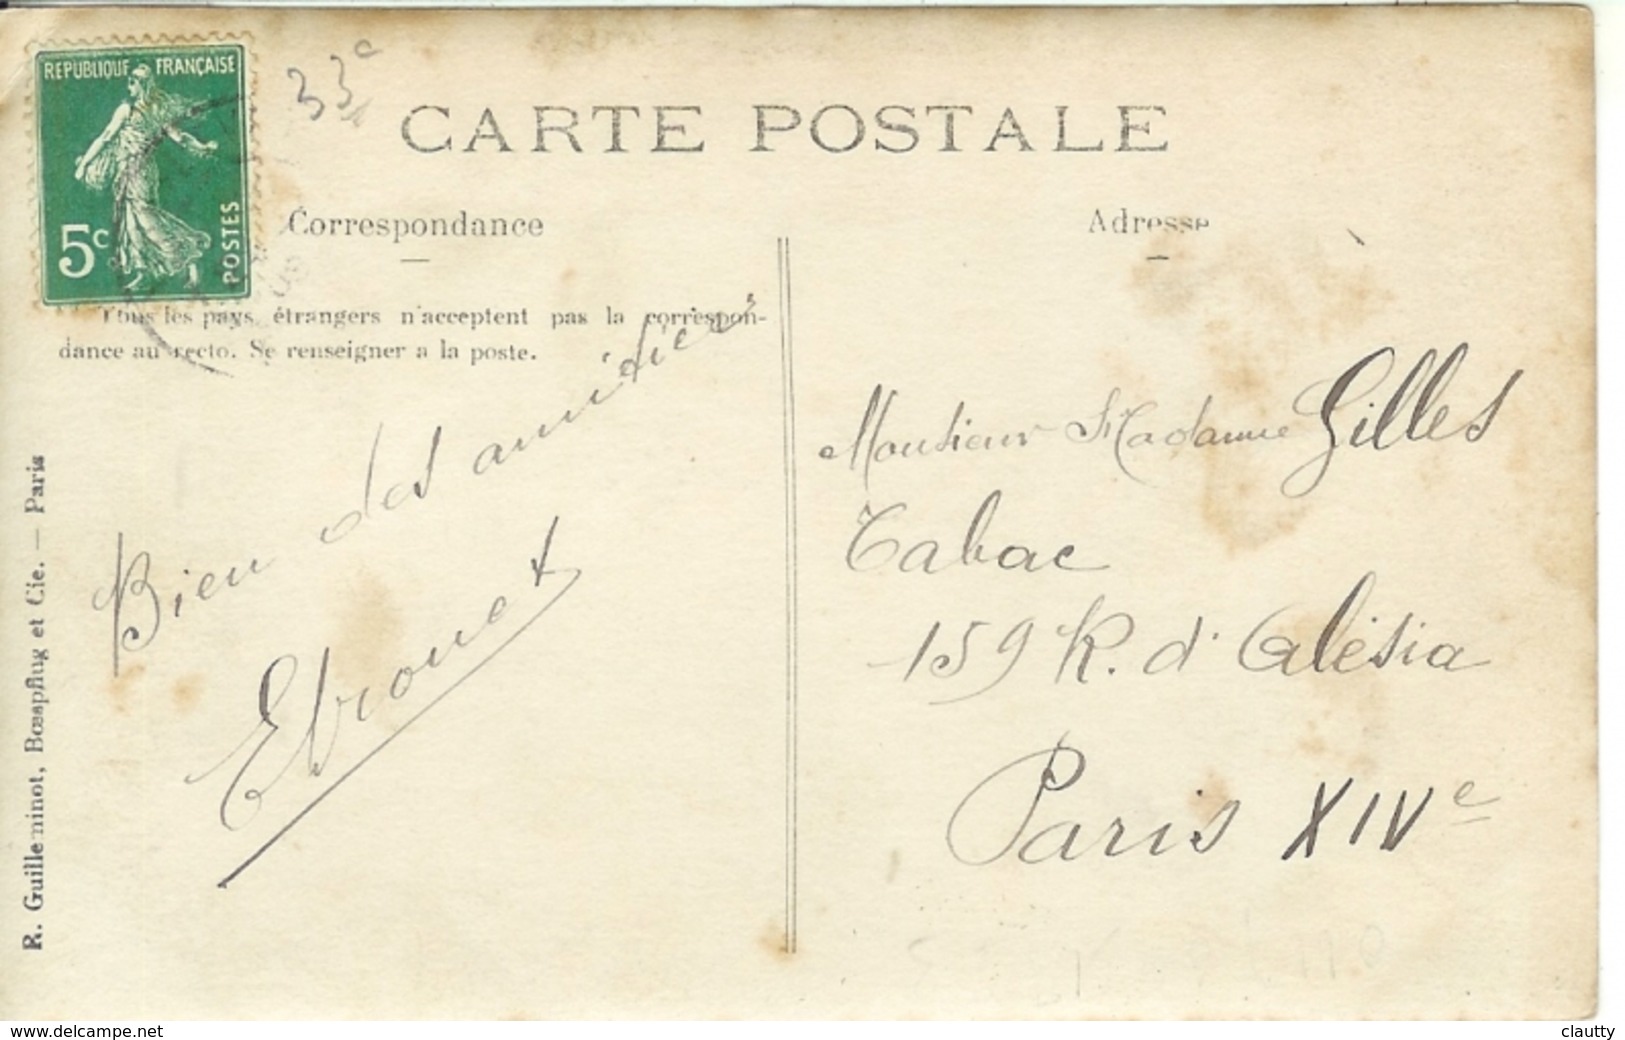 REPUBLIQUE FRANÇAISE
5c
POSTES
33
CARTE POSTALE
Correspondance
Adresse
Tous les pays étrangers n'acceptent pas la correspon-
dance au recto. Se renseigner a la poste.
Bien des amitiés
Ebrouet
R. Guilleminot, Bœspflug et Cie. — Paris
Monsieur Madame Gilles
Tabac
159 R. d'Alésia
Paris XIVe
www.delcampe.net
clautty